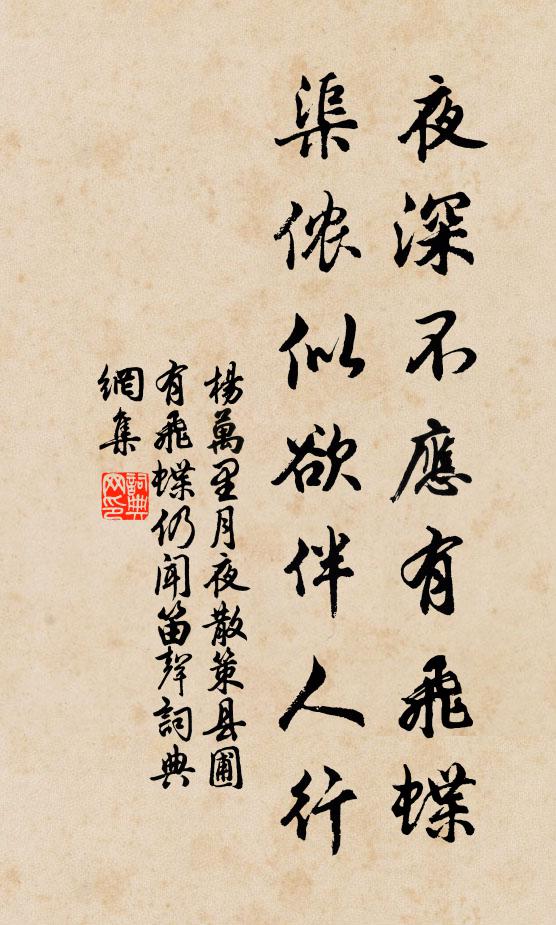 夜深不應有飛蝶
渠侬似欲伴人行
楊萬里月夜散策县圃
有飛蝶仍聞笛聲詞典
網集
詞典
网印